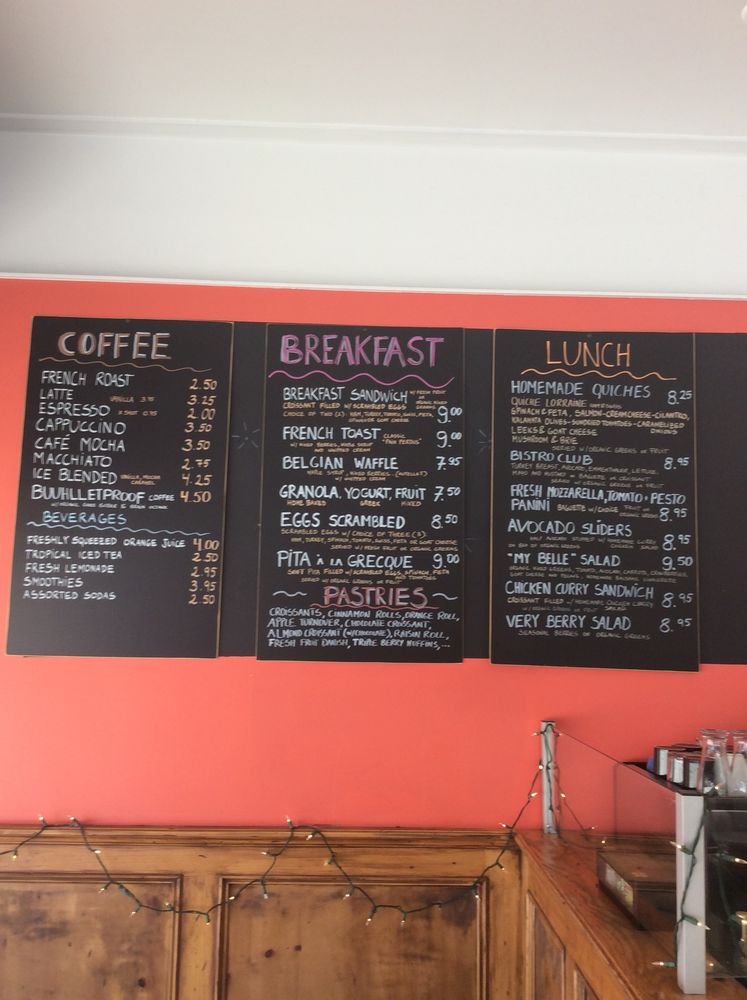 COFFEE
FRENCH ROAST 2.50
LATTE VANILLA 3.75 3.25
ESPRESSO X SHOT 0.95 2.00
CAPPUCCINO 3.50
CAFÉ MOCHA 3.50
MACCHIATO 2.75
ICE BLENDED VANILLA, MOCHA CARAMEL 4.25
BUUHLLETPROOF COFFEE 4.50
BEVERAGES
FRESHLY SQUEEZED ORANGE JUICE 4.00
TROPICAL ICED TEA 2.50
FRESH LEMONADE 2.95
SMOOTHIES 3.95
ASSORTED SODAS 2.50
BREAKFAST
BREAKFAST SANDWICH W/ FRESH FRUIT OR MIXED GREENS 9.00
CROISSANT FILLED W/ SCRAMBLED EGGS
CHOICE OF TWO (2): HAM, TURKEY, TOMATO, SWISS, FETA,
SPINACH OR GOAT CHEESE
FRENCH TOAST CLASSIC "PAIN PERDUS" 9.00
W/ MIXED BERRIES, MAPLE SYRUP
AND WHIPPED CREAM
BELGIAN WAFFLE 7.95
MAPLE SYRUP, MIXED BERRIES (NUTELLA)
W/ WHIPPED CREAM
GRANOLA, YOGURT, FRUIT 7.50
HOME BAKED GREEK MIXED
EGGS SCRAMBLED 8.50
SCRAMBLED EGGS W/ CHOICE OF THREE (3):
HAM, TURKEY, SPINACH, TOMATO, SWISS, FETA OR GOAT CHEESE
SERVED W/ FRESH FRUIT OR ORGANIC GREENS
PITA À LA GRECQUE 9.00
SOFT PITA FILLED W/ SCRAMBLED EGGS, SPINACH, FETA
AND TOMATOES
SERVED W/ ORGANIC GREENS OR FRUIT
PASTRIES
CROISSANTS, CINNAMON ROLLS, ORANGE ROLL,
APPLE TURNOVER, CHOCOLATE CROISSANT,
ALMOND CROISSANT (W/CHOCOLATE), RAISIN ROLL,
FRESH FRUIT DANISH, TRIPLE BERRY MUFFINS, ...
LUNCH
HOMEMADE QUICHES 8.25
QUICHE LORRAINE
SPINACH & FETA, SALMON-CREAMCHEESE-CILANTRO,
KALAMATA OLIVES-SUNDRIED TOMATOES-CARAMELIZED ONIONS
LEEKS & GOAT CHEESE
MUSHROOM & BRIE
SERVED W/ ORGANIC GREENS OR FRUIT
BISTRO CLUB 8.95
TURKEY BREAST, AVOCADO, EMMENTHALER, LETTUCE,
MAYO AND MUSTARD IN BAGUETTE OR CROISSANT
SERVED W/ ORGANIC GREENS OR FRUIT
FRESH MOZZARELLA, TOMATO & PESTO
PANINI BAGUETTE W/CHOICE FRUIT OR ORGANIC GREENS 8.95
AVOCADO SLIDERS 8.95
HALF AVOCADO STUFFED W/ HOMEMADE CURRY
ON BED OF ORGANIC GREENS CHICKEN SALAD
"MY BELLE" SALAD 9.50
ORGANIC MIXED GREENS, TOMATO, AVOCADO, CARROTS, CRANBERRIES,
GOAT CHEESE AND PECANS. HOMEMADE BALSAMIC VINAIGRETTE
CHICKEN CURRY SANDWICH 8.95
CROISSANT FILLED W/ HOMEMADE CHICKEN CURRY
W/ ORGANIC GREENS OR FRUIT SALAD
VERY BERRY SALAD 8.95
SEASONAL BERRIES ON ORGANIC GREENS